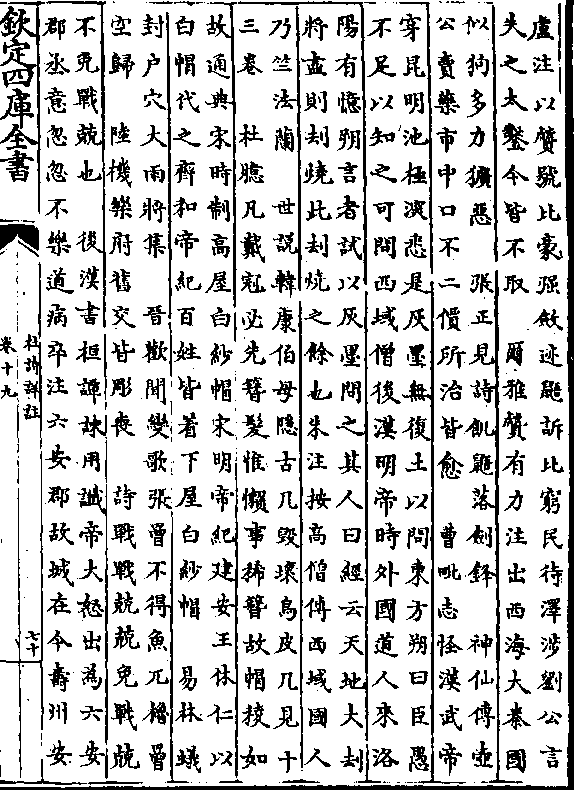 盧注以贙號比豪强斂迹鼯訴比窮民待澤涉劉公言
失之太鑿今皆不取　爾雅贙有力注出西海大秦國
似狗多力獷惡　張正見詩飢鼯落劍鋒　神仙傳壺
公賣藥市中口不二價所治皆愈　曹毗志怪漢武帝
穿昆明池極深悉是灰墨無復土以問東方朔曰臣愚
不足以知之可問西域僧後漢明帝時外國道人來洛
陽有憶朔言者試以灰墨問之其人曰經云天地大刦
將盡則刦燒此刦燒之餘也朱注按高僧傳西域國人
乃竺法蘭　世說韓康伯母隠古几毀壞烏皮几見十
三卷　杜臆凡戴冠必先簪髮惟懶事稀簪故帽稜如
故通典宋時制高屋白紗帽宋明帝紀建安王休仁以
白帽代之齊和帝紀百姓皆着下屋白紗帽　易林蟻
封户穴大雨將集　晉歡聞變歌張罾不得魚兀櫓罾
空歸　陸機樂府舊交皆彫喪　詩戰戰兢兢免戰兢
不免戰兢也　後漢書桓譚諫用讖帝大怒出為六安
郡丞意忽忽不樂道病卒注六安郡故城在今壽州安
欽定四庫全書
杜詩詳註
卷十九
七十